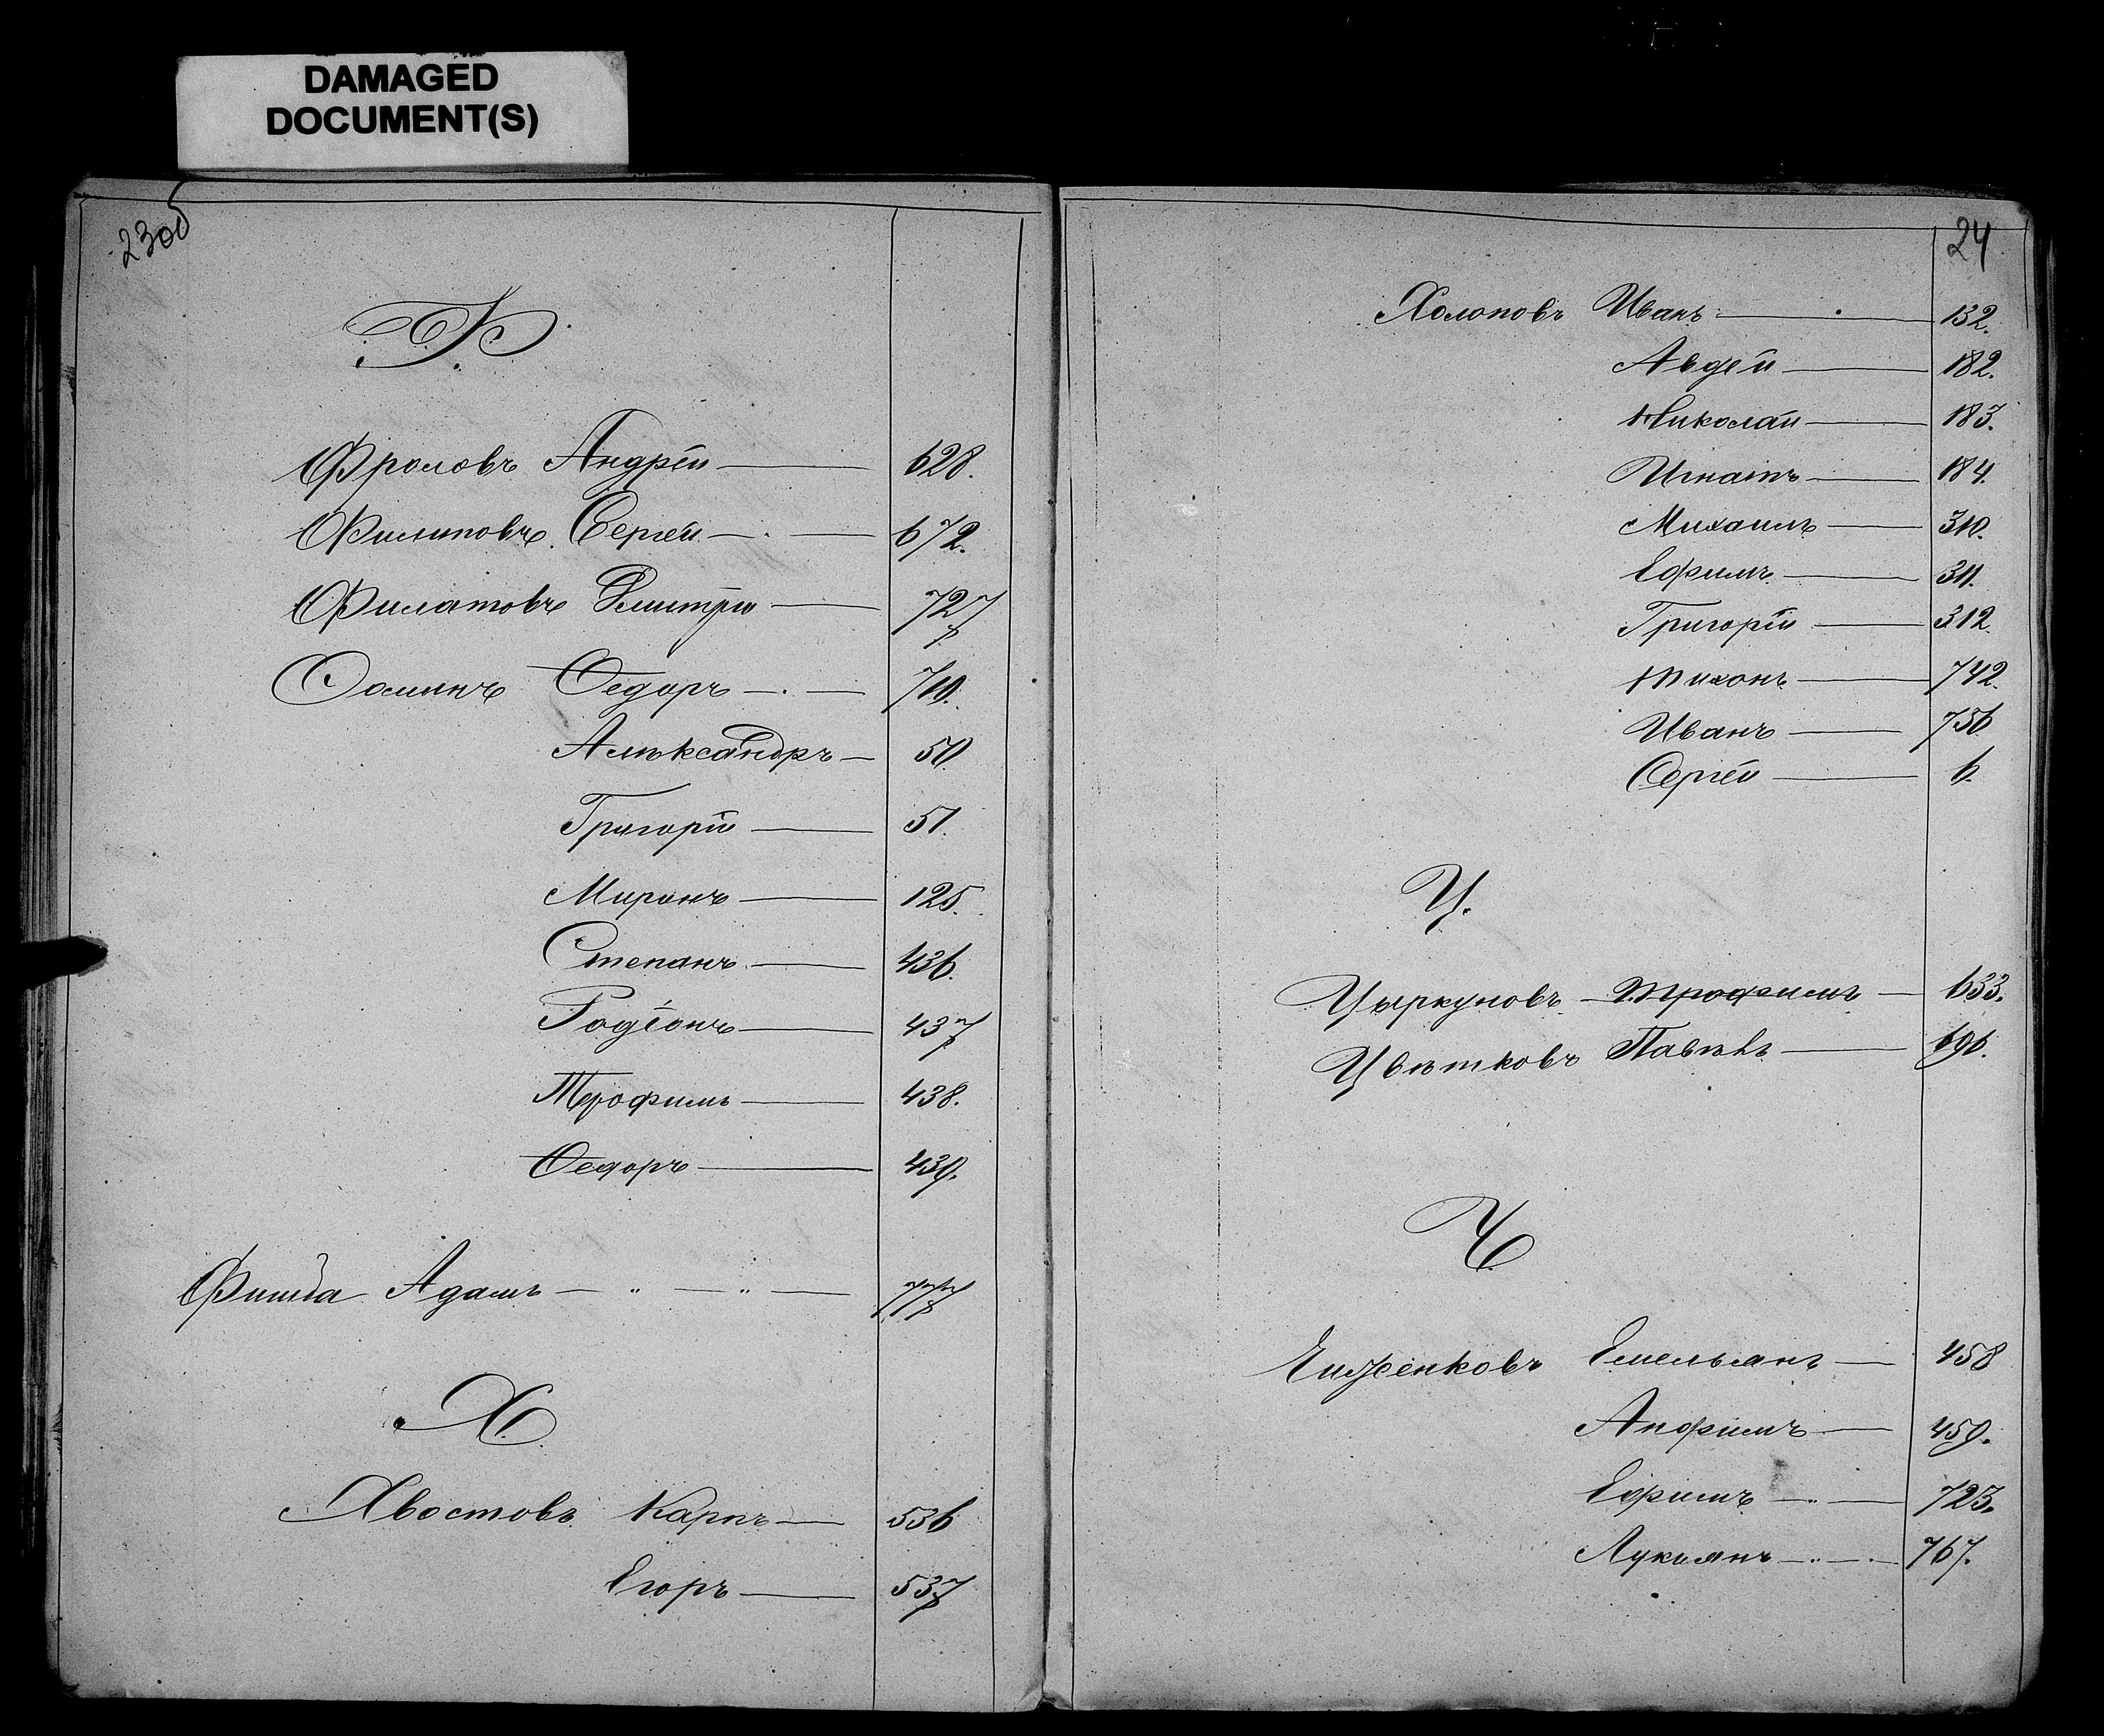 DAMAGED
DOCUMENT(S)
23об
Ф.
Фроловъ Андрей — 628.
Филиповъ Сергей — . — 672.
Филатовъ Дмитрій — 727
Ѳоминъ Ѳедоръ — . — 719.
Алѣксандръ — 50
Григорій — 51.
Миронъ — 125.
Степанъ — 436.
Родіонъ — 437
Трофимъ — 438.
Ѳедоръ — 439.
Адамъ — „ — „ — 777
Х.
Хвостовъ Карпъ — 536
Егоръ — 537
24
Холоповъ Иванъ — 132.
Авдей — 182.
Николай — 183.
Игнатъ — 184.
Михаилъ — 310.
Ефимъ — 311.
Григорій — 312.
Тихонъ — 742.
Иванъ — 756
Сергей — 6.
Ц.
Цыркуновъ — Трофимъ — 633.
Цвѣтковъ Павѣлъ — 696.
Ч.
Чиженковъ Емельянъ — 458
Анфимъ — 459.
Ефимъ — „ — 723.
Лукиянъ — „ — . — 767.